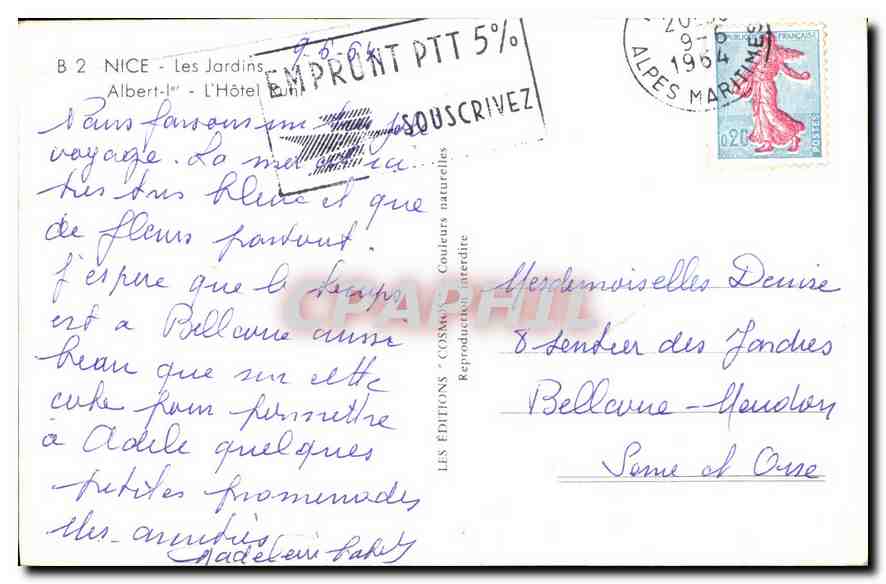 B 2 NICE - Les Jardins
Albert-Ier - L'Hôtel
9-6-64
EMPRUNT PTT 5%
SOUSCRIVEZ
9-6
1964
ALPES MARITIMES
RÉPUBLIQUE FRANÇAISE
0,20
POSTES
Nous faisons un
voyage. La mer est ici
très très bleue et que
de fleurs partout.
J'espère que le temps
est à Bellevue aussi
beau que sur cette
côte pour permettre
à Adèle quelques
petites promenades
Mes amitiés
Madeleine
LES ÉDITIONS "COSMOS" Couleurs naturelles
Reproduction interdite
CPAPHIL
Mesdemoiselles Denise
8 sentier des Jardies
Bellevue-Meudon
Seine et Oise